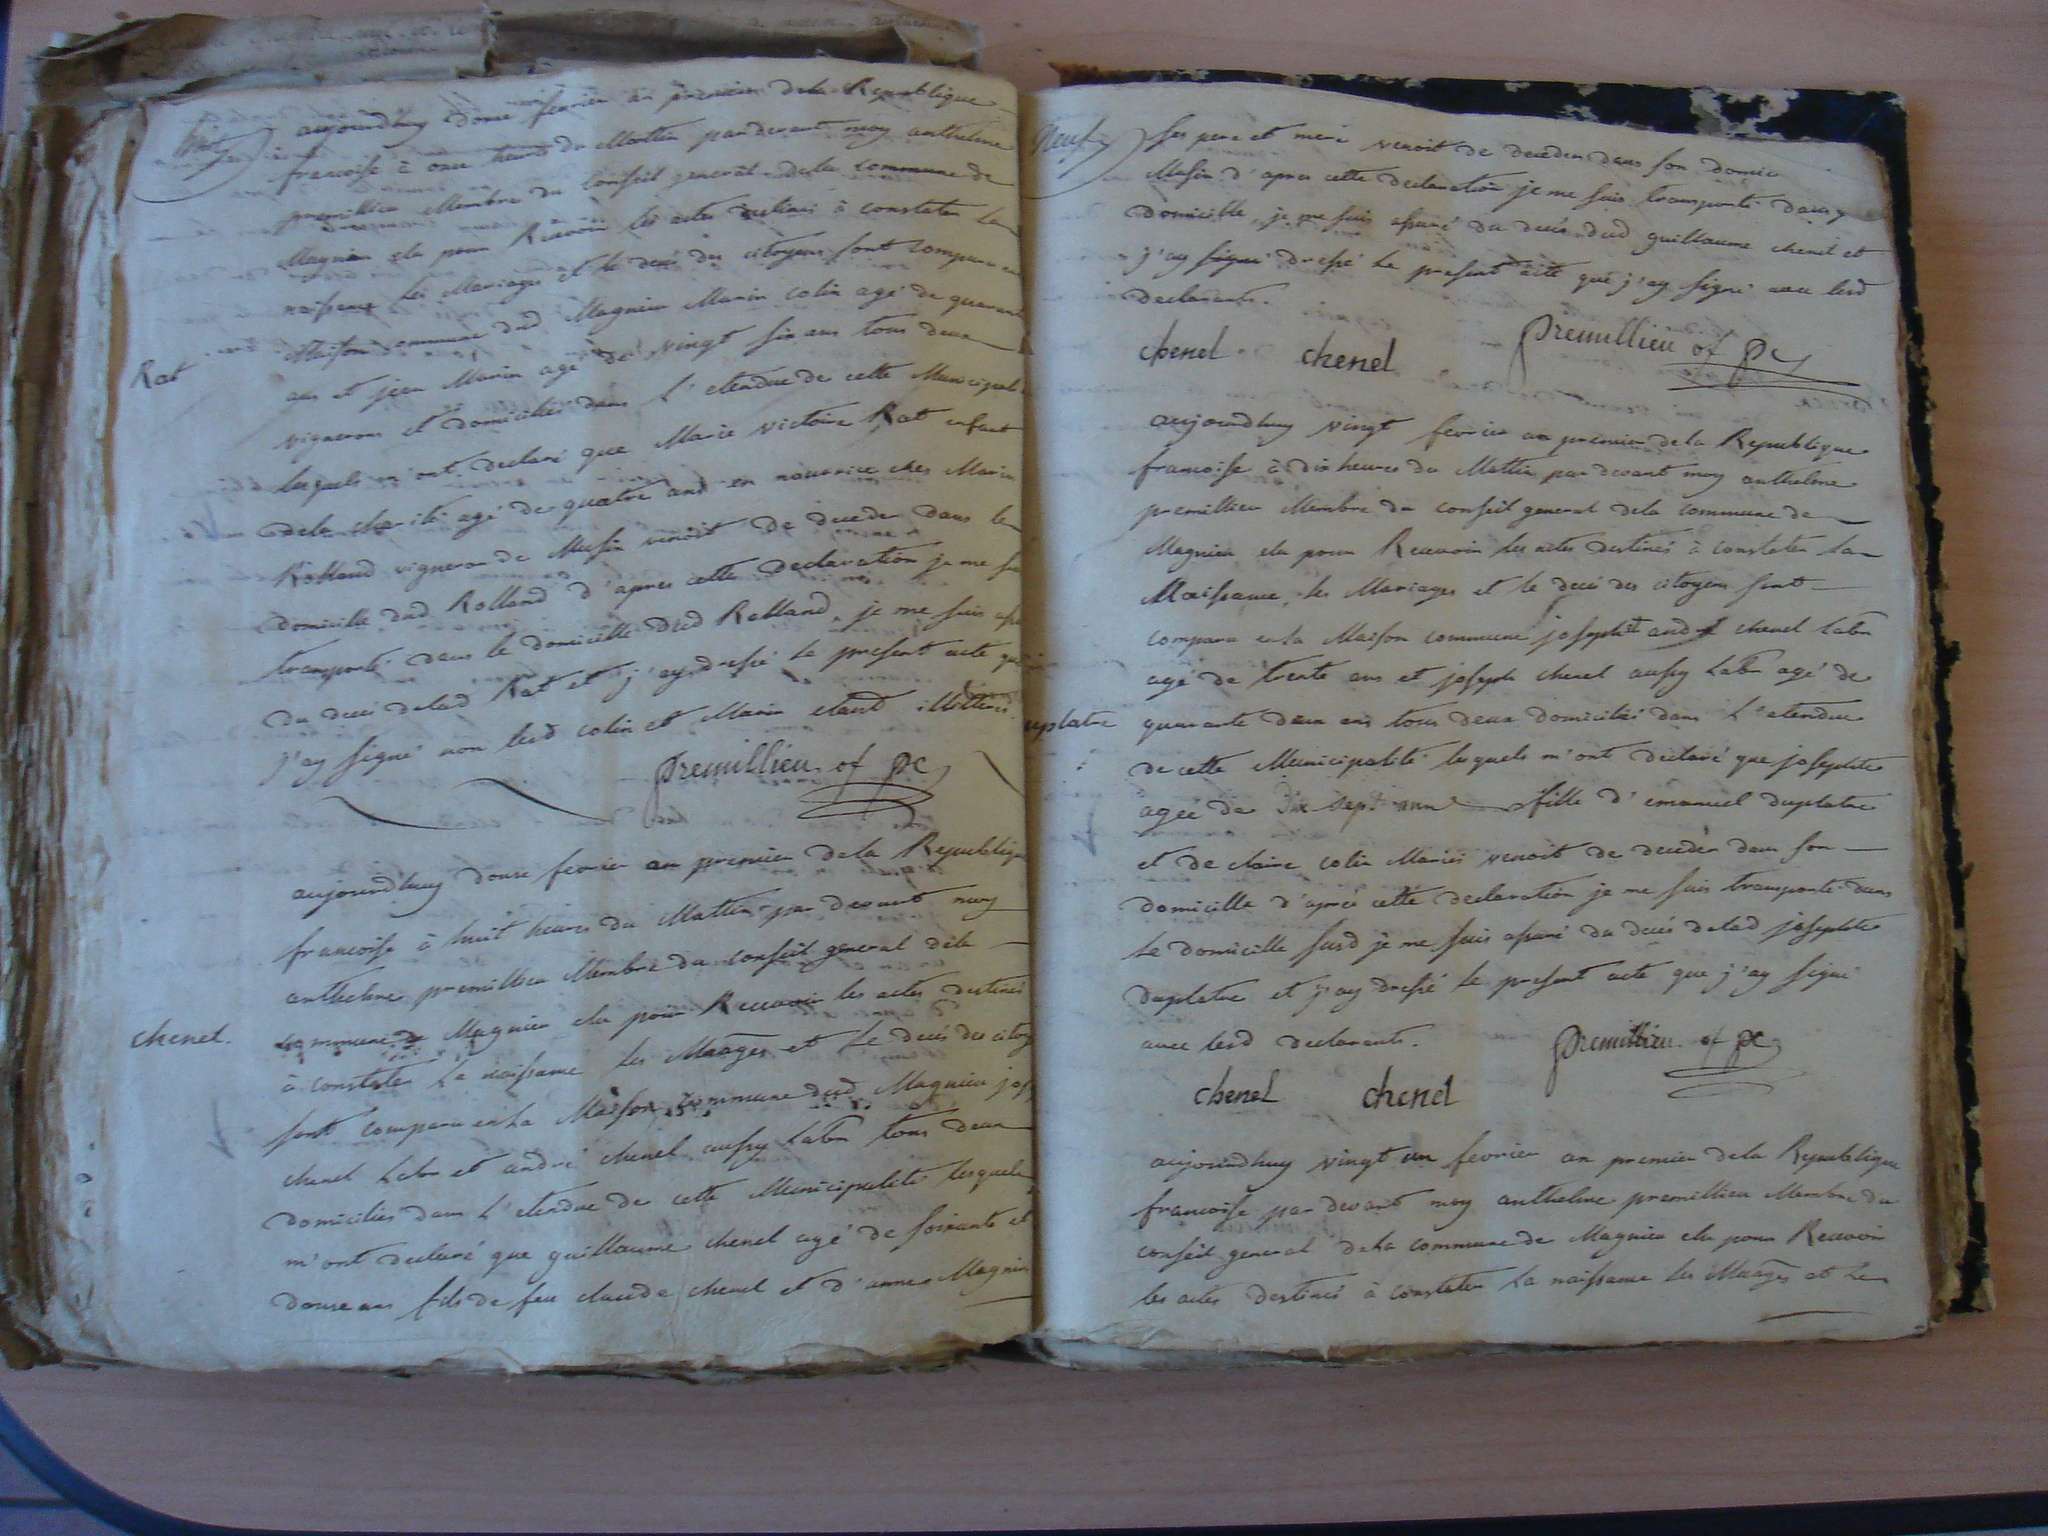 huit
aujourdhuy douse fevrier an premier dela Republique
francoise à onse heures du Mattin pardevant moy anthelme
premillieu Membre du Conseil general dela commune de
Magnieu elu pour Recevoir les actes destinés à constater La
naissance les Mariages et le decé des citoyens sont comparu en
Maison commune dud Magnieu Marin colin agé de quarante
Rat
ans et jean Marin agé de vingt six ans tous deux
vignerons et domiciliés dans l'etendue de cette Municipal
lesquels m'ont declaré que Marie victoire Rat enfant
dela charité agé de quatre ans en nourrice ches Marin
Rolland vigneron de Musin venoit de deceder dans le
domicille dud Rolland d'apres cette declaration je me sui
transporté dans le domicille dud Rolland, je me suis assu
du decé delad Rat et j'ay dressé le present acte que
j'ay signé non lesd colin et Marin etant illitterés
premillieu of pc
aujourdhuy douse fevrier an premier dela Republique
francoise à huit heures du Mattin par devant moy
anthelme premillieu Membre du conseil general dela
commune de Magnieu elu pour Recevoir les actes destinés
chenel.
à constater La naissance les Maages et Le decés des citoy
sont comparu en La Maison commune dud Magnieu jos
chenel Labr et andré chenel aussy Labr tous deux
domiciliés dans L'etendue de cette Municipalité lesquels
m'ont declaré que guillaume chenel agé de soixante et
douse ans fils de feu claude chenel et d'anne Magnin
Neuf
ses pere et mere venoit de deceder dans son domici
Musin d'apres cette declaration je me suis transporté dans
domicille, je me suis assuré du decés dud guillaume chenel et
j'ay signé dressé Le present acte que j'ay signé avec lesd
declarants.
chenel chenel premillieu of pc
aujourdhuy vingt fevrier an premier de la Republique
francoise à dix heures du Mattin par devant moy anthelme
premillieu Membre du conseil general dela commune de
Magnieu elu pour Recevoir les actes destinés à constater La
Naissance, les Mariages et le decé des citoyens sont
comparu en La Maison commune joseph et andré chenel Labr
agé de trente ans et joseph chenel aussy Labr agé de
uplatre
quarante deux ans tous deux domiciliés dans L'etendue
de cette Municipalité lesquels m'ont declaré que josephte
ageé de dix sept ans fille d'emanuel duplatre
et de claire colin Mariés venoit de deceder dans son
domicille d'apré cette declaration je me suis transporté dans
Le domicille susd je me suis assuré du decés delad josephte
duplatre et j'ay dressé le present acte que j'ay signé
avec lesd declarants.
premillieu of pc
chenel chenel
aujourdhuy vingt un fevrier an premier dela Republique
francoise par devant moy anthelme premillieu Membre du
conseil general dela commune de Magnieu elu pour Recevoir
les actes destinés à constater La naissance les Maages et Le